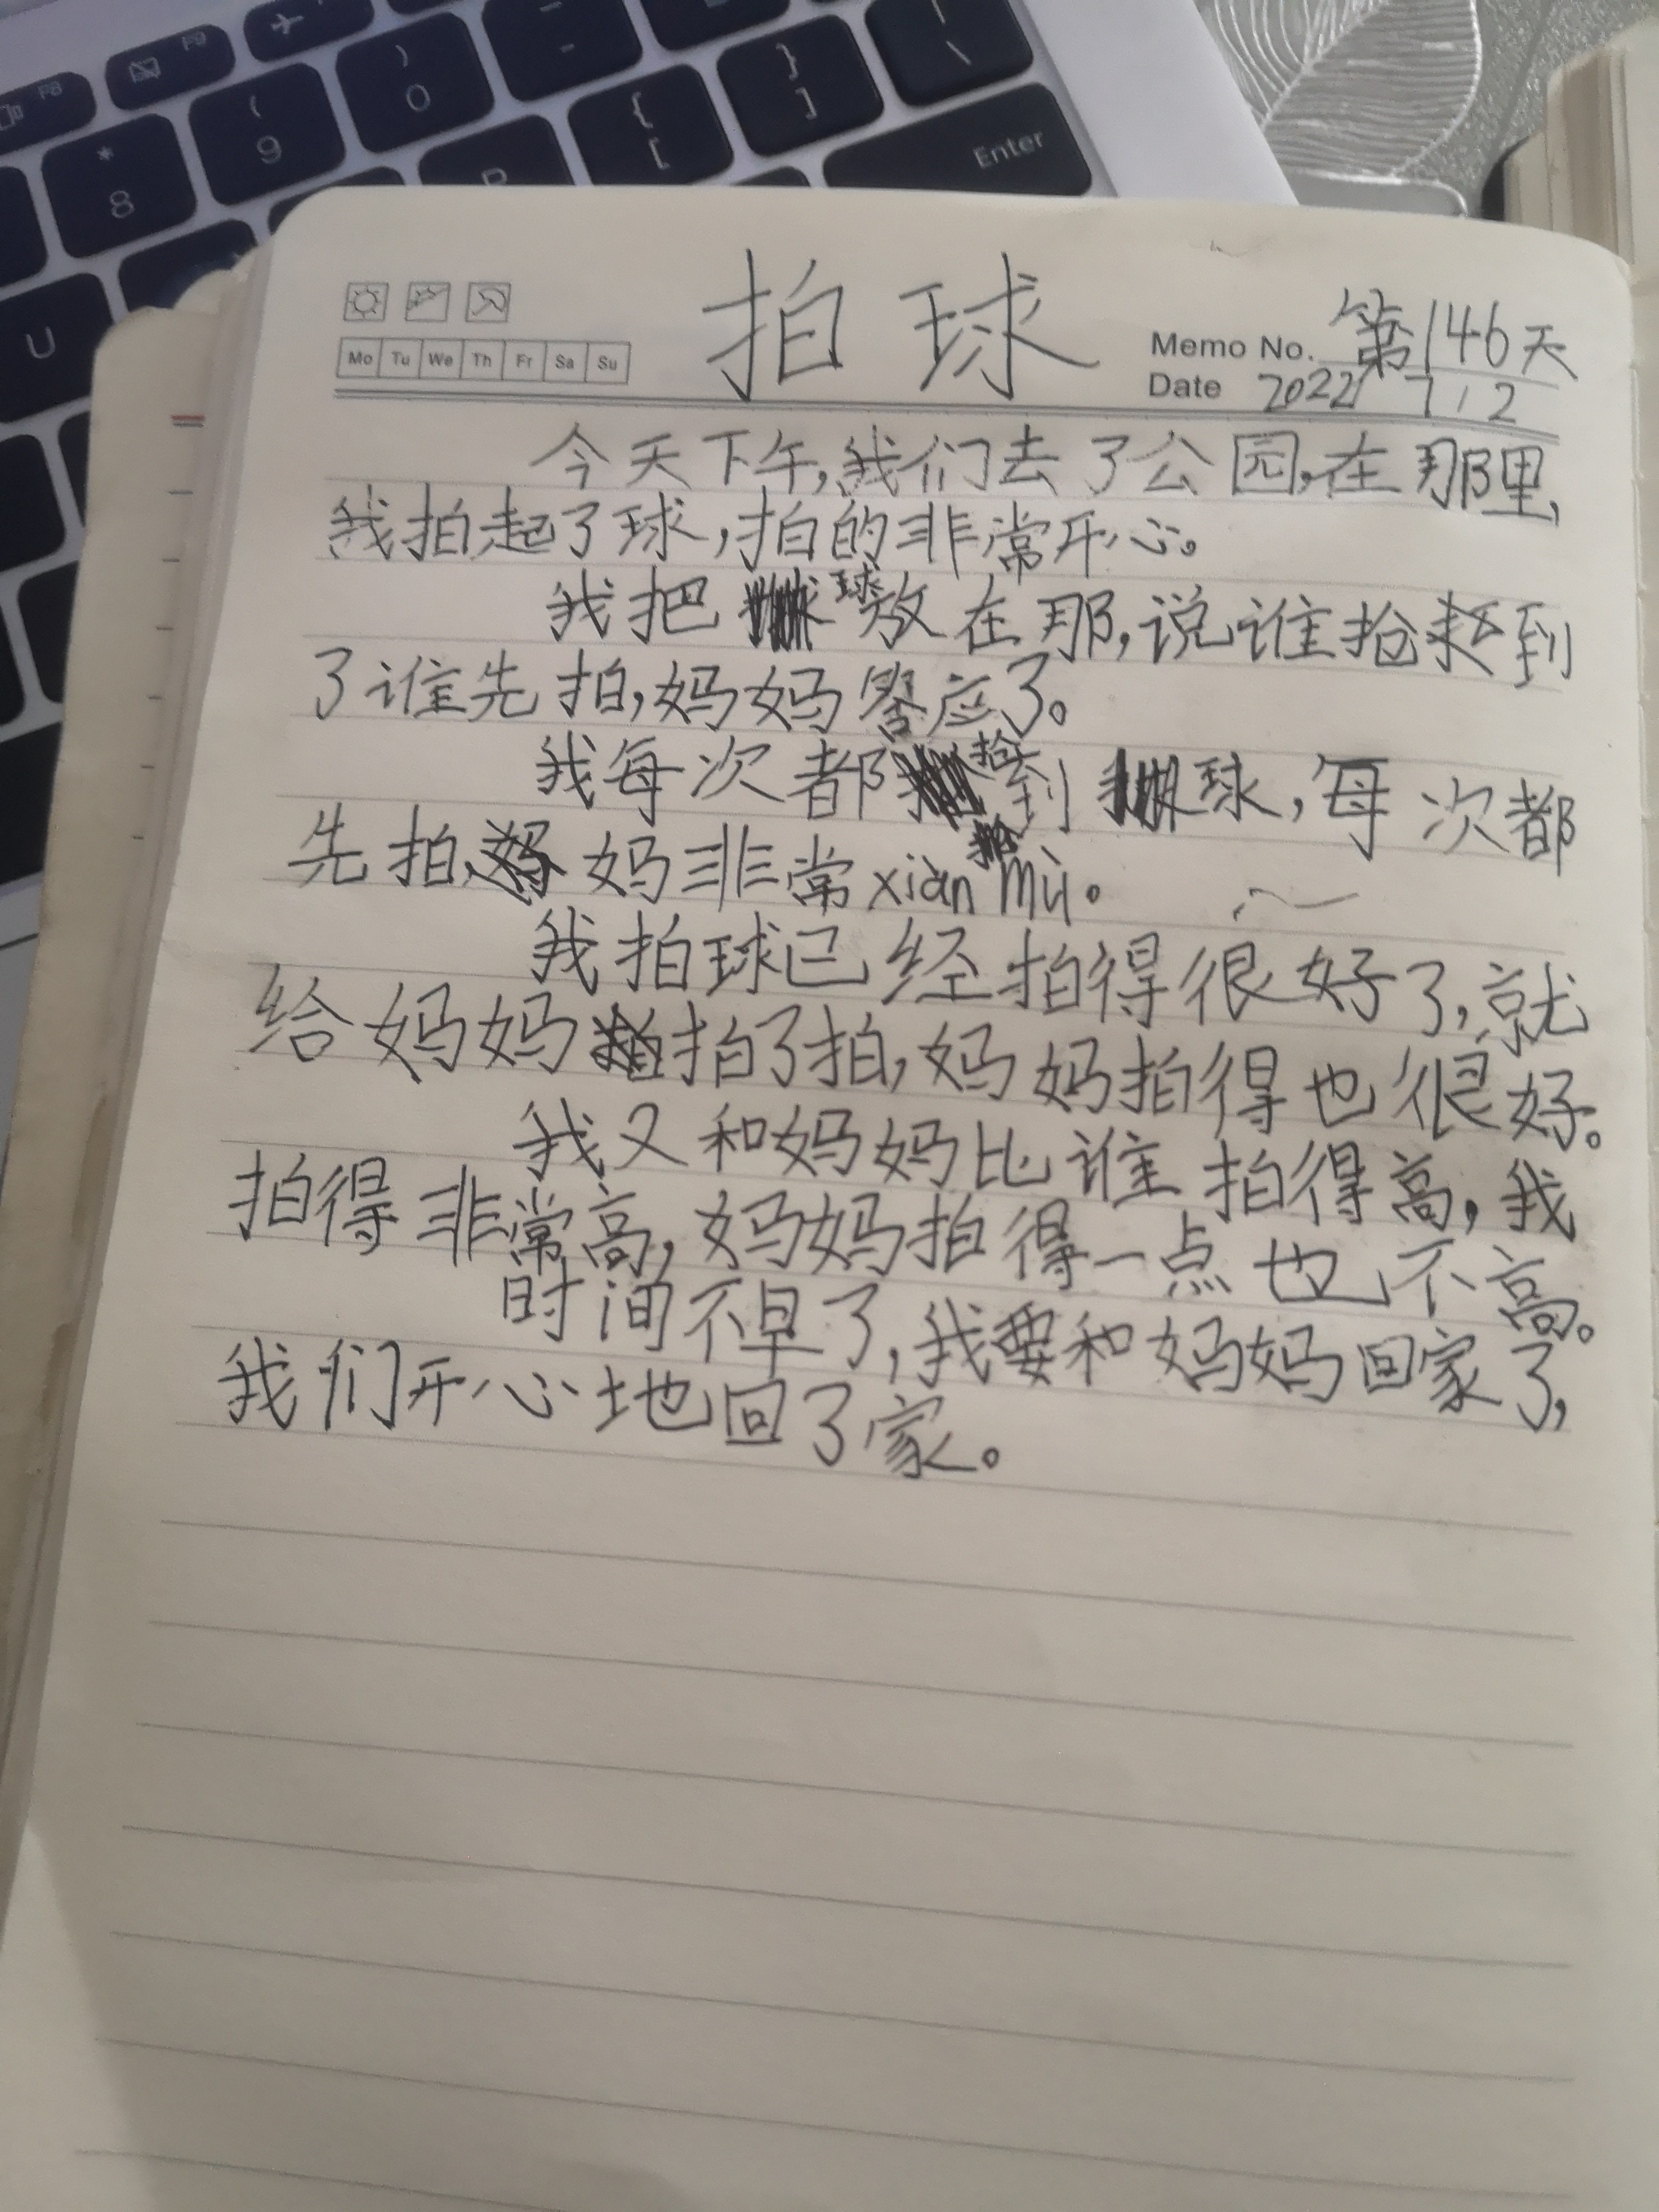 F8
F9
* 8
( 9
) 0
-
{ [
} ]
| \
P
Enter
U
拍球
Mo Tu We Th Fr Sa Su
Memo No. 第146天
Date 2022 7 / 2
今天下午,我们去了公园,在那里,
我拍起了球,拍的非常开心。
我把球放在那,说谁抢到
了谁先拍,妈妈答应了。
我每次都抢到球,每次都
先拍,妈妈非常xiàn mù。
我拍球已经拍得很好了,就
给妈妈拍了拍,妈妈拍得也很好。
我又和妈妈比谁拍得高,我
拍得非常高,妈妈拍得一点也不高。
时间不早了,我要和妈妈回家了,
我们开心地回了家。